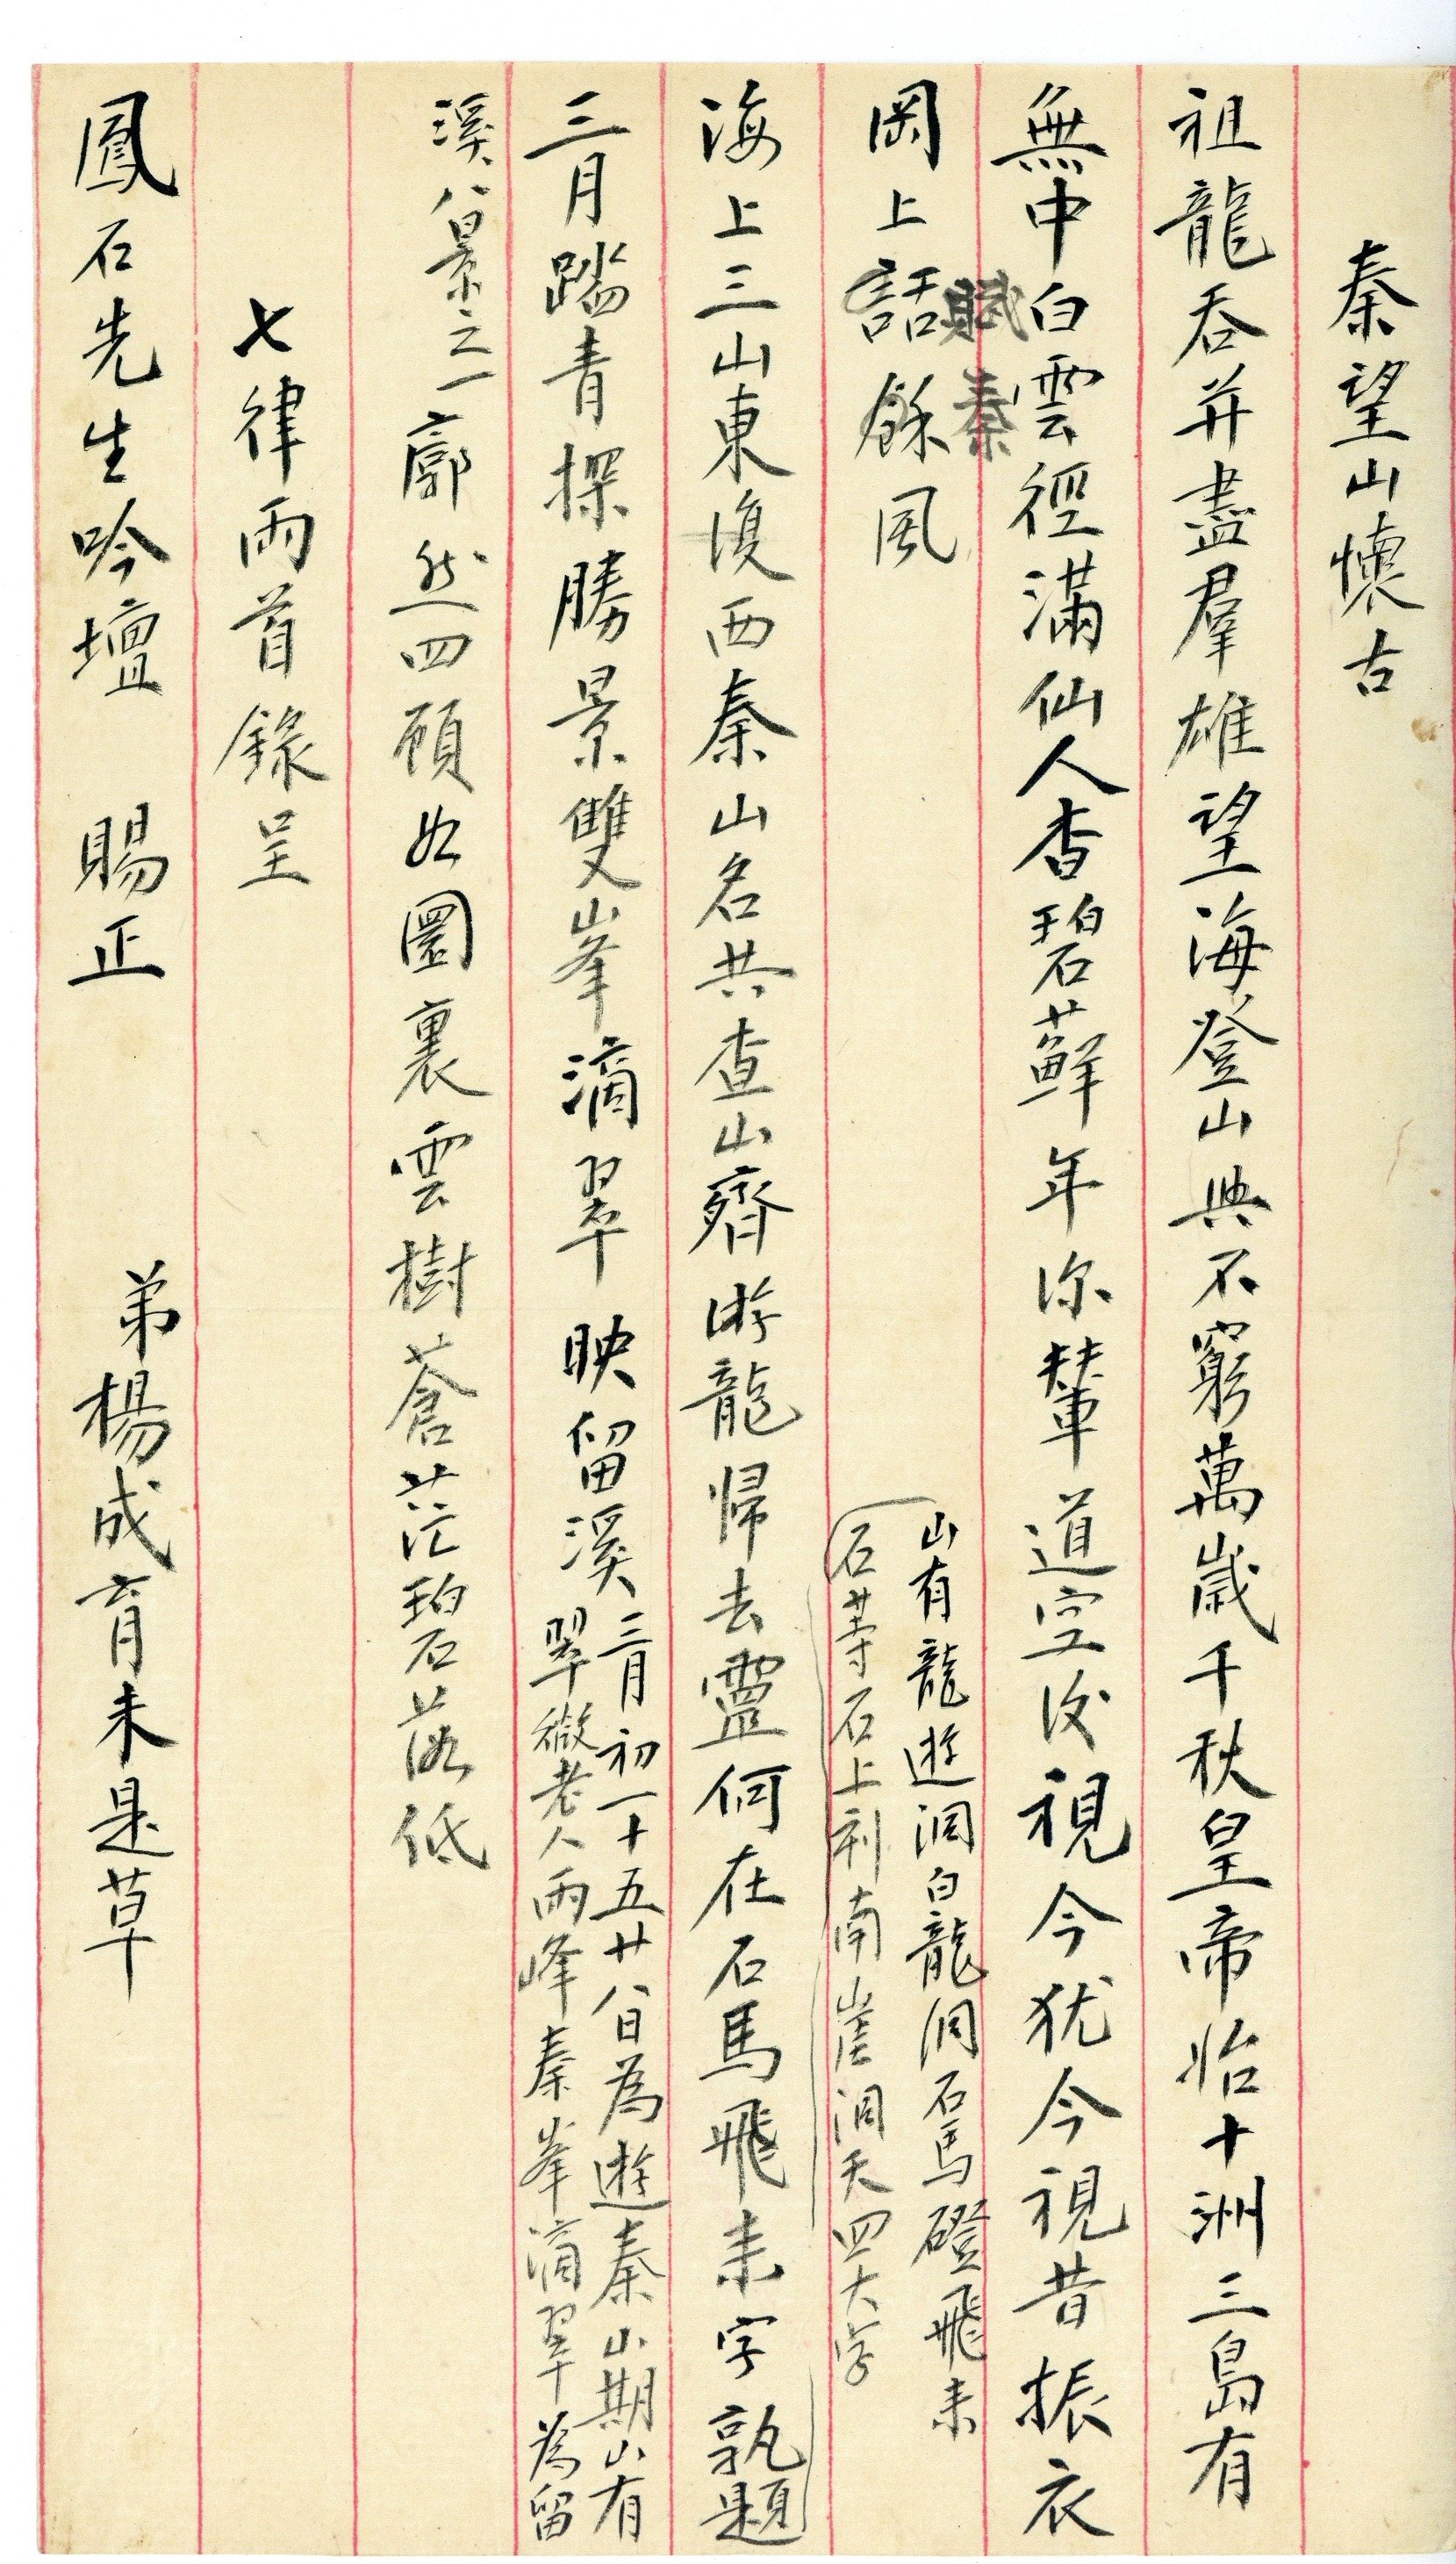 秦望山懷古
祖龍吞并盡羣雄望海登山興不窮萬歲千秋皇帝怡十洲三島有
無中白雲徑滿仙人杳碧蘚年深輦道空後視今犹今視昔振衣
岡上話餘風
賦秦
山有龍遊洞白龍洞石馬磴飛来
石等石上刊南崖洞天四大字
海上三山東復西秦山名共查山齊游龍歸去靈何在石馬飛来字孰題
三月踏青探勝景雙峯滴翠映留溪
三月初一十五廿八日為遊秦山期山有
翠微老人兩峰秦峯滴翠為留
溪八景之一廓然四顧如圖裏雲樹蒼茫碧落低
七律兩首錄呈
鳳石先生吟壇 賜正 弟楊成育未是草